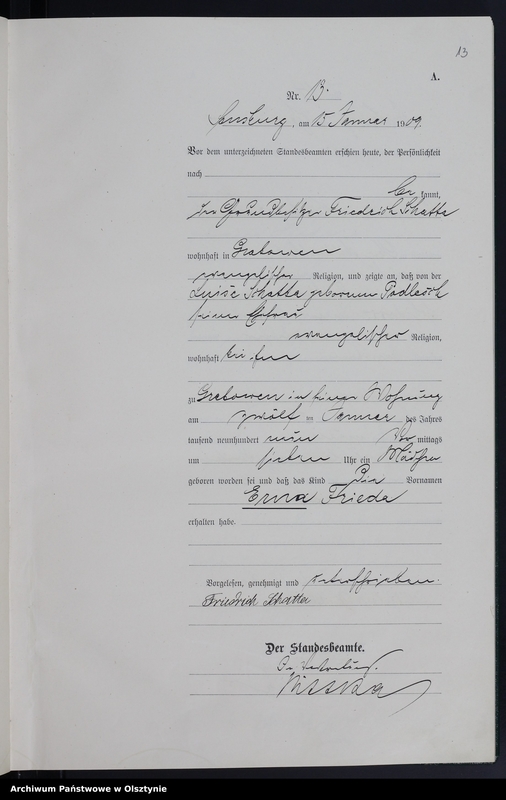 13
A.
Nr. 13.
Sensburg, am 15 Januar 1909.
Vor dem unterzeichneten Standesbeamten erschien heute, der Persönlichkeit
nach
be kannt,
der Grundbesitzer Friedrich Schatta
wohnhaft in Grabowen
evangelischer Religion, und zeigte an, daß von der
Luise Schatta geborenen Podlesch
seiner Ehefrau
evangelischer Religion,
wohnhaft bei ihm
zu Grabowen in seiner Wohnung
am zwölften Januar des Jahres
tausend neunhundert neun Vor mittags
um sieben Uhr ein Mädchen
geboren worden sei und daß das Kind die Vornamen
Erna Frieda
erhalten habe.
Vorgelesen, genehmigt und unterschrieben.
Friedrich Schatta
Der Standesbeamte.
In Vertretung.
Archiwum Państwowe w Olsztynie